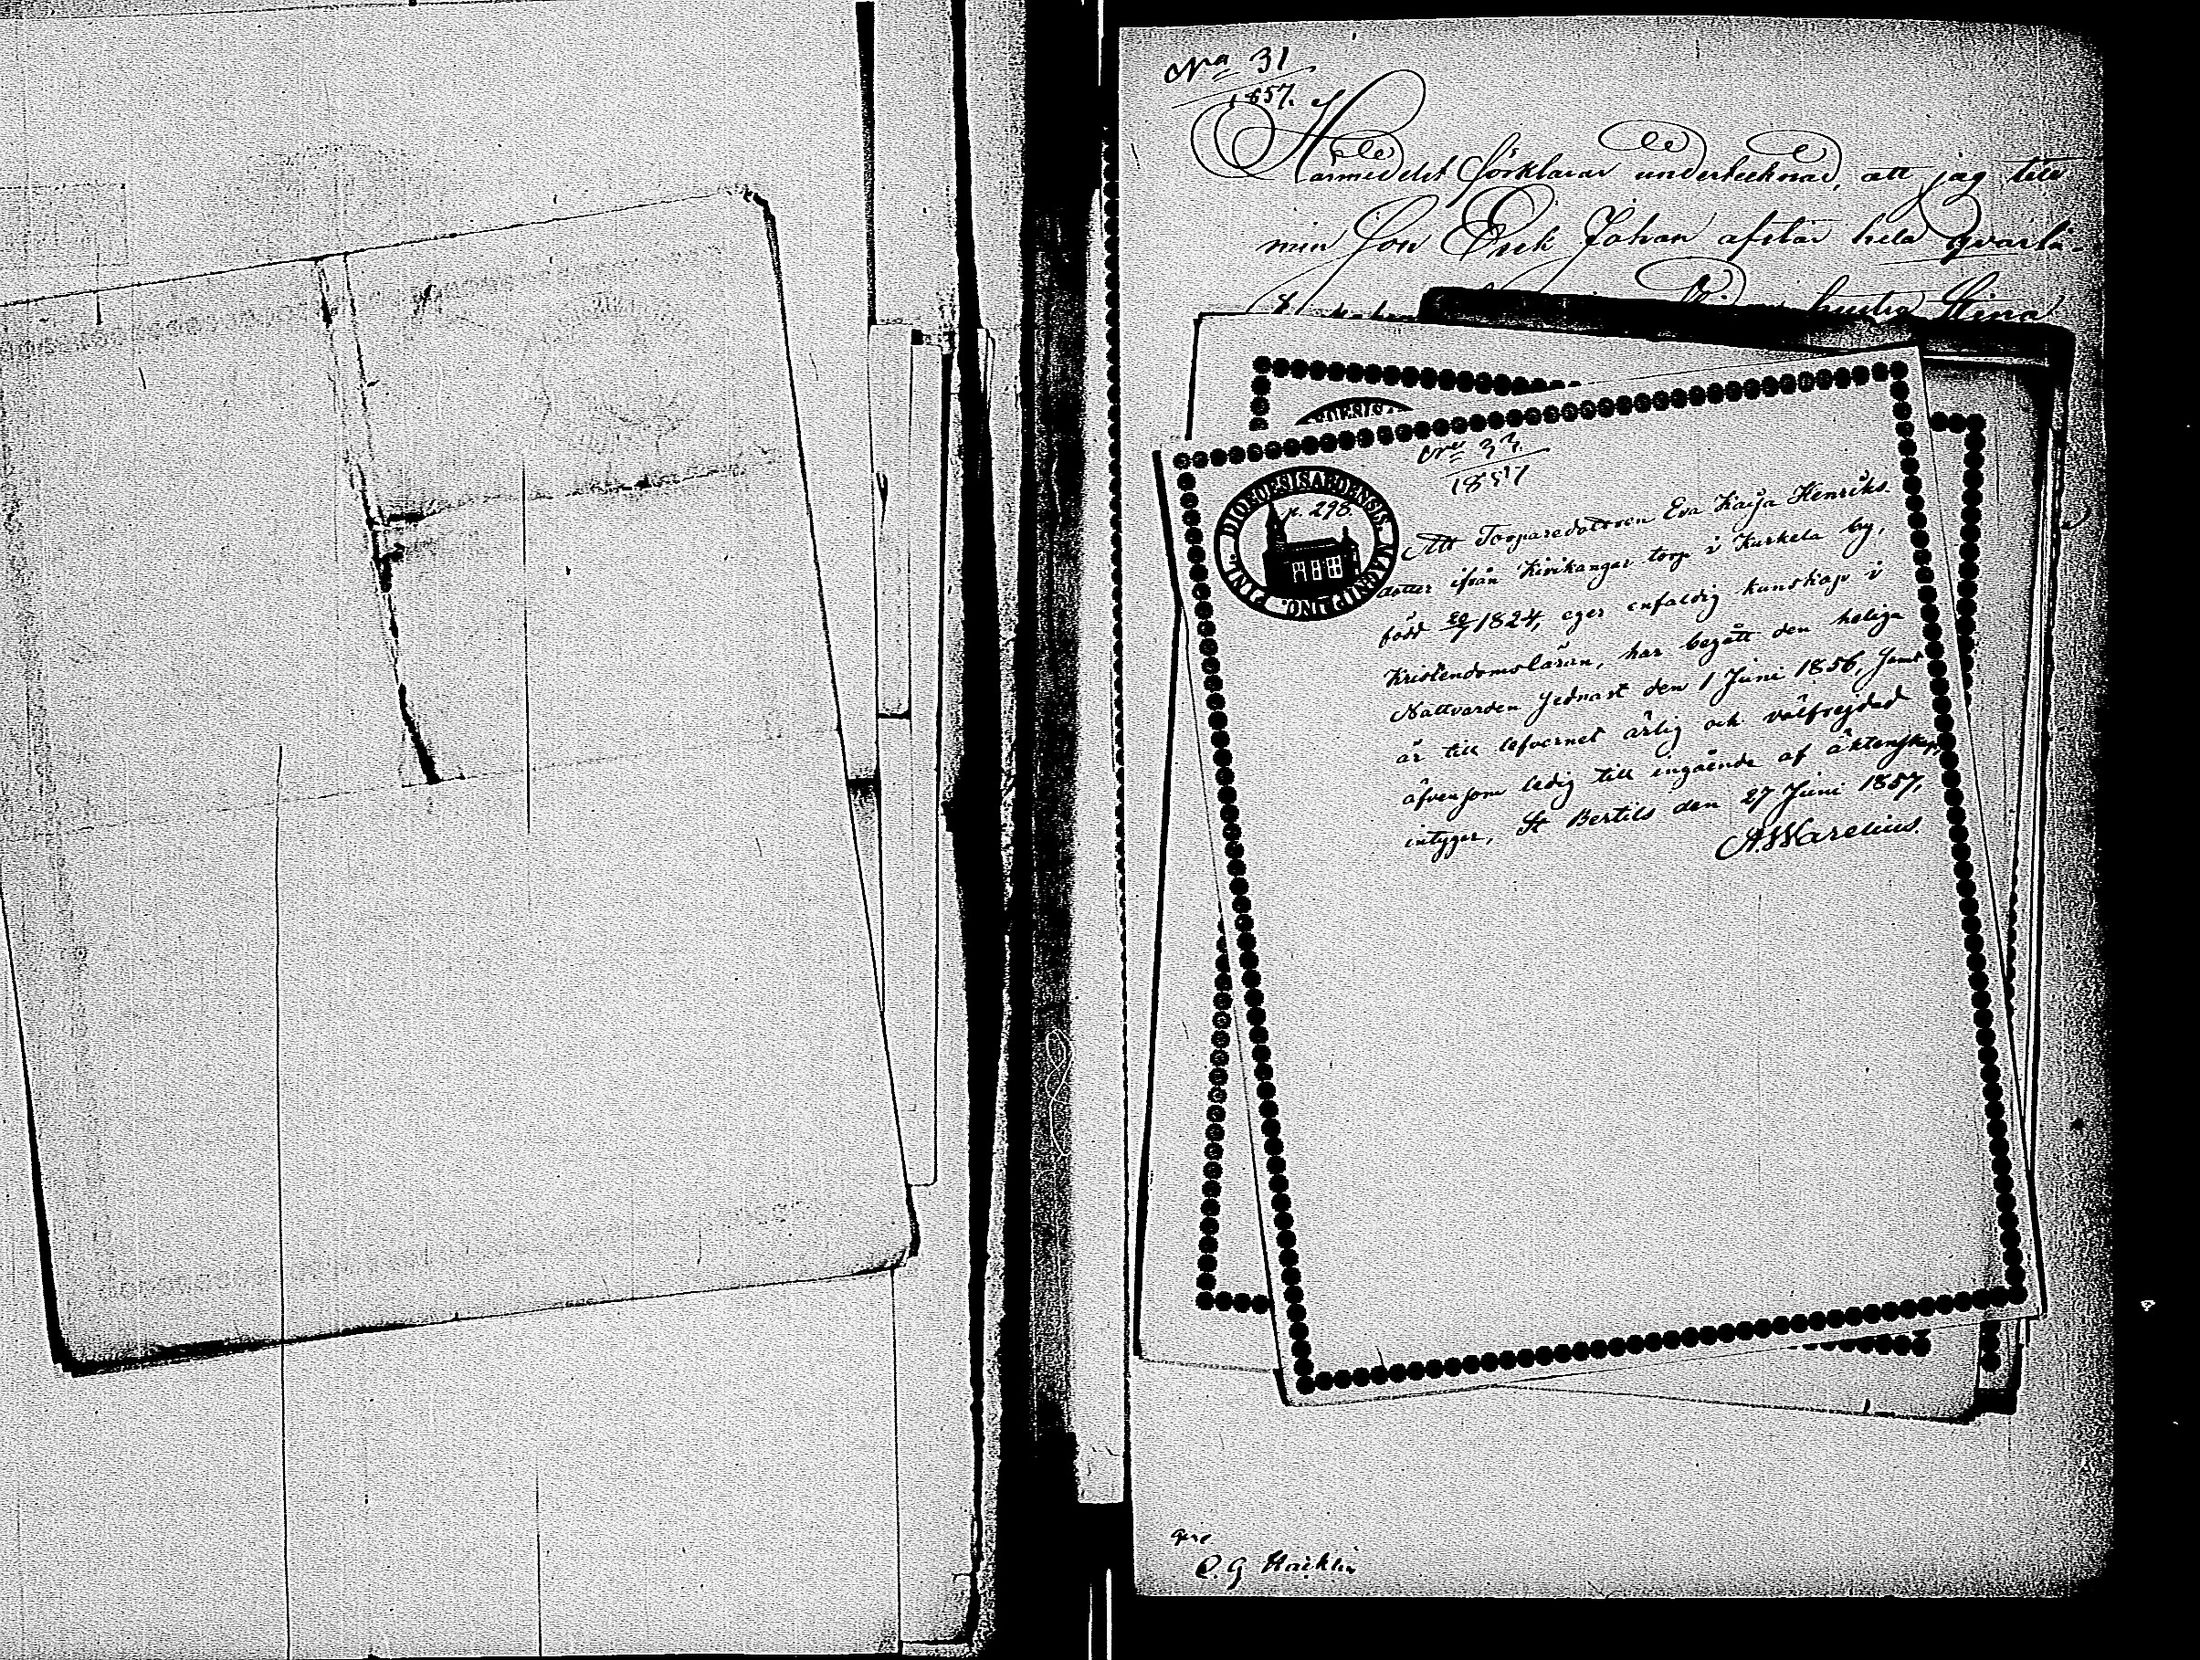 No 31
1857.
Härmedelst förklarar undertecknad, att jag till
min Son Erik Johan afstår hela
hustru Stina
DIOECESIS
No 33
1857
DIOECESIS ABOENSIS. MAGNIP. UNG. FINL.
p. 298.
Att Torparedottren Eva Kaija Henriks-
dotter ifrån Kivikangas torp i Kurkela by,
född 20/7 1824, eger enfaldig kunskap i
Kristendomsläran, har begått den heliga
Nattvarden sednast den 1 Juni 1856, samt
är till lefvernet ärlig och välfrejdad
äfvensom ledig till ingående af äktenskap,
intygar, St Bertils den 27 Juni 1857,
A. Warelius.